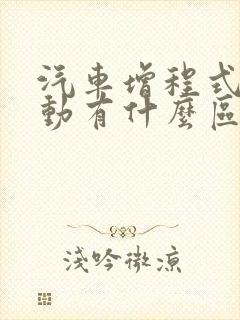 汽車增程式
動有什麼區
淺吟微涼